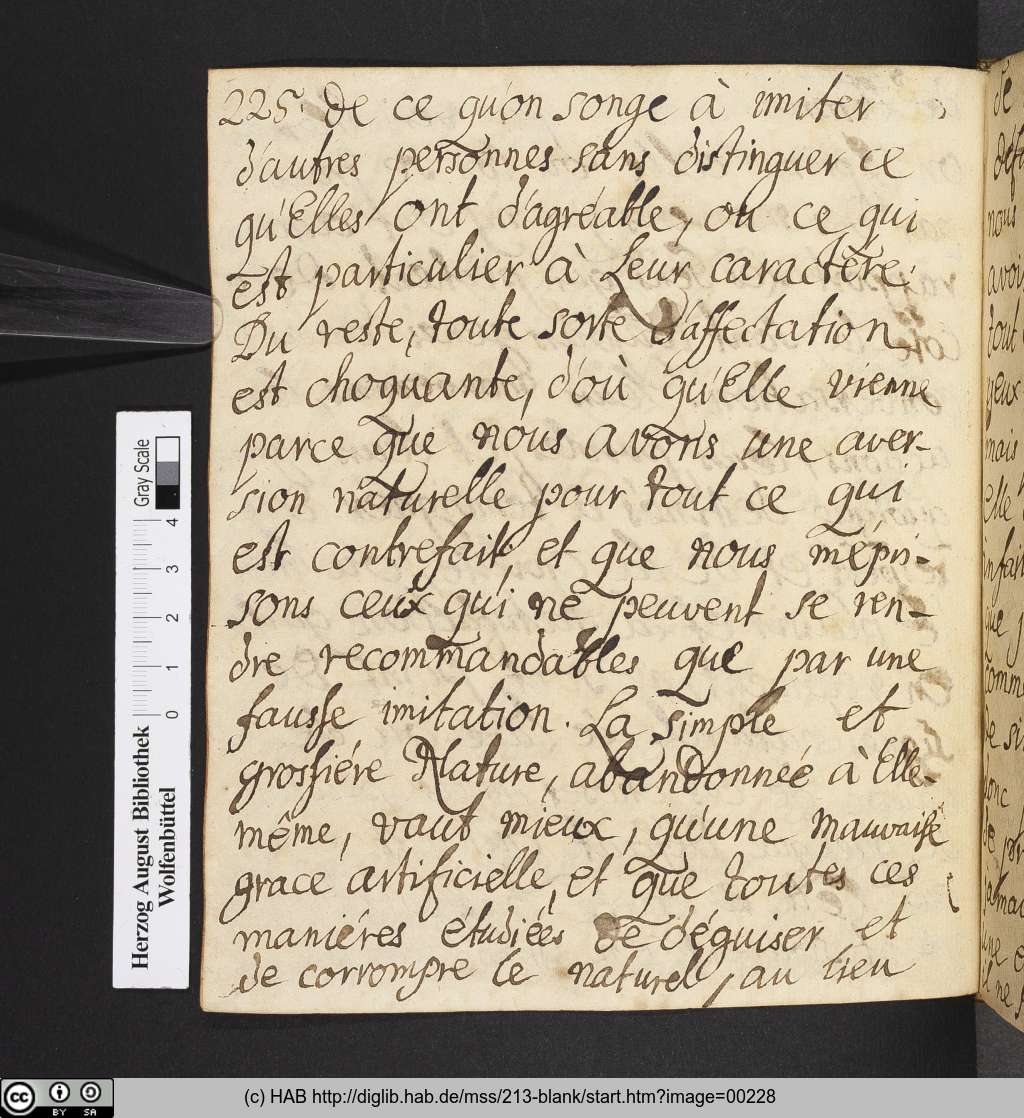 225. de ce qu'on songe à imiter
d'autres personnes sans distinguer ce
qu'Elles ont d'agréable, ou ce qui
est particulier à Leur caractère.
Du reste, toute sorte d'affectation
est choquante, d'où qu'Elle vienne
parce que nous avons une aver-
sion naturelle pour tout ce qui
est contrefait, et que nous mépri-
sons ceux qui ne peuvent se ren-
dre recommandables que par une
fausse imitation. La simple et
grossiére Nature, abandonnée à Elle-
même, vaut mieux, qu'une mauvaise
grace artificielle, et que toutes ces
maniéres étudiées de déguiser et
de corrompre le naturel, au lieu
Gray Scale
4
3
2
1
0
Herzog August Bibliothek
Wolfenbüttel
de
nous
tout
yeux
mais
Elle
cc BY SA
(c) HAB http://diglib.hab.de/mss/213-blank/start.htm?image=00228